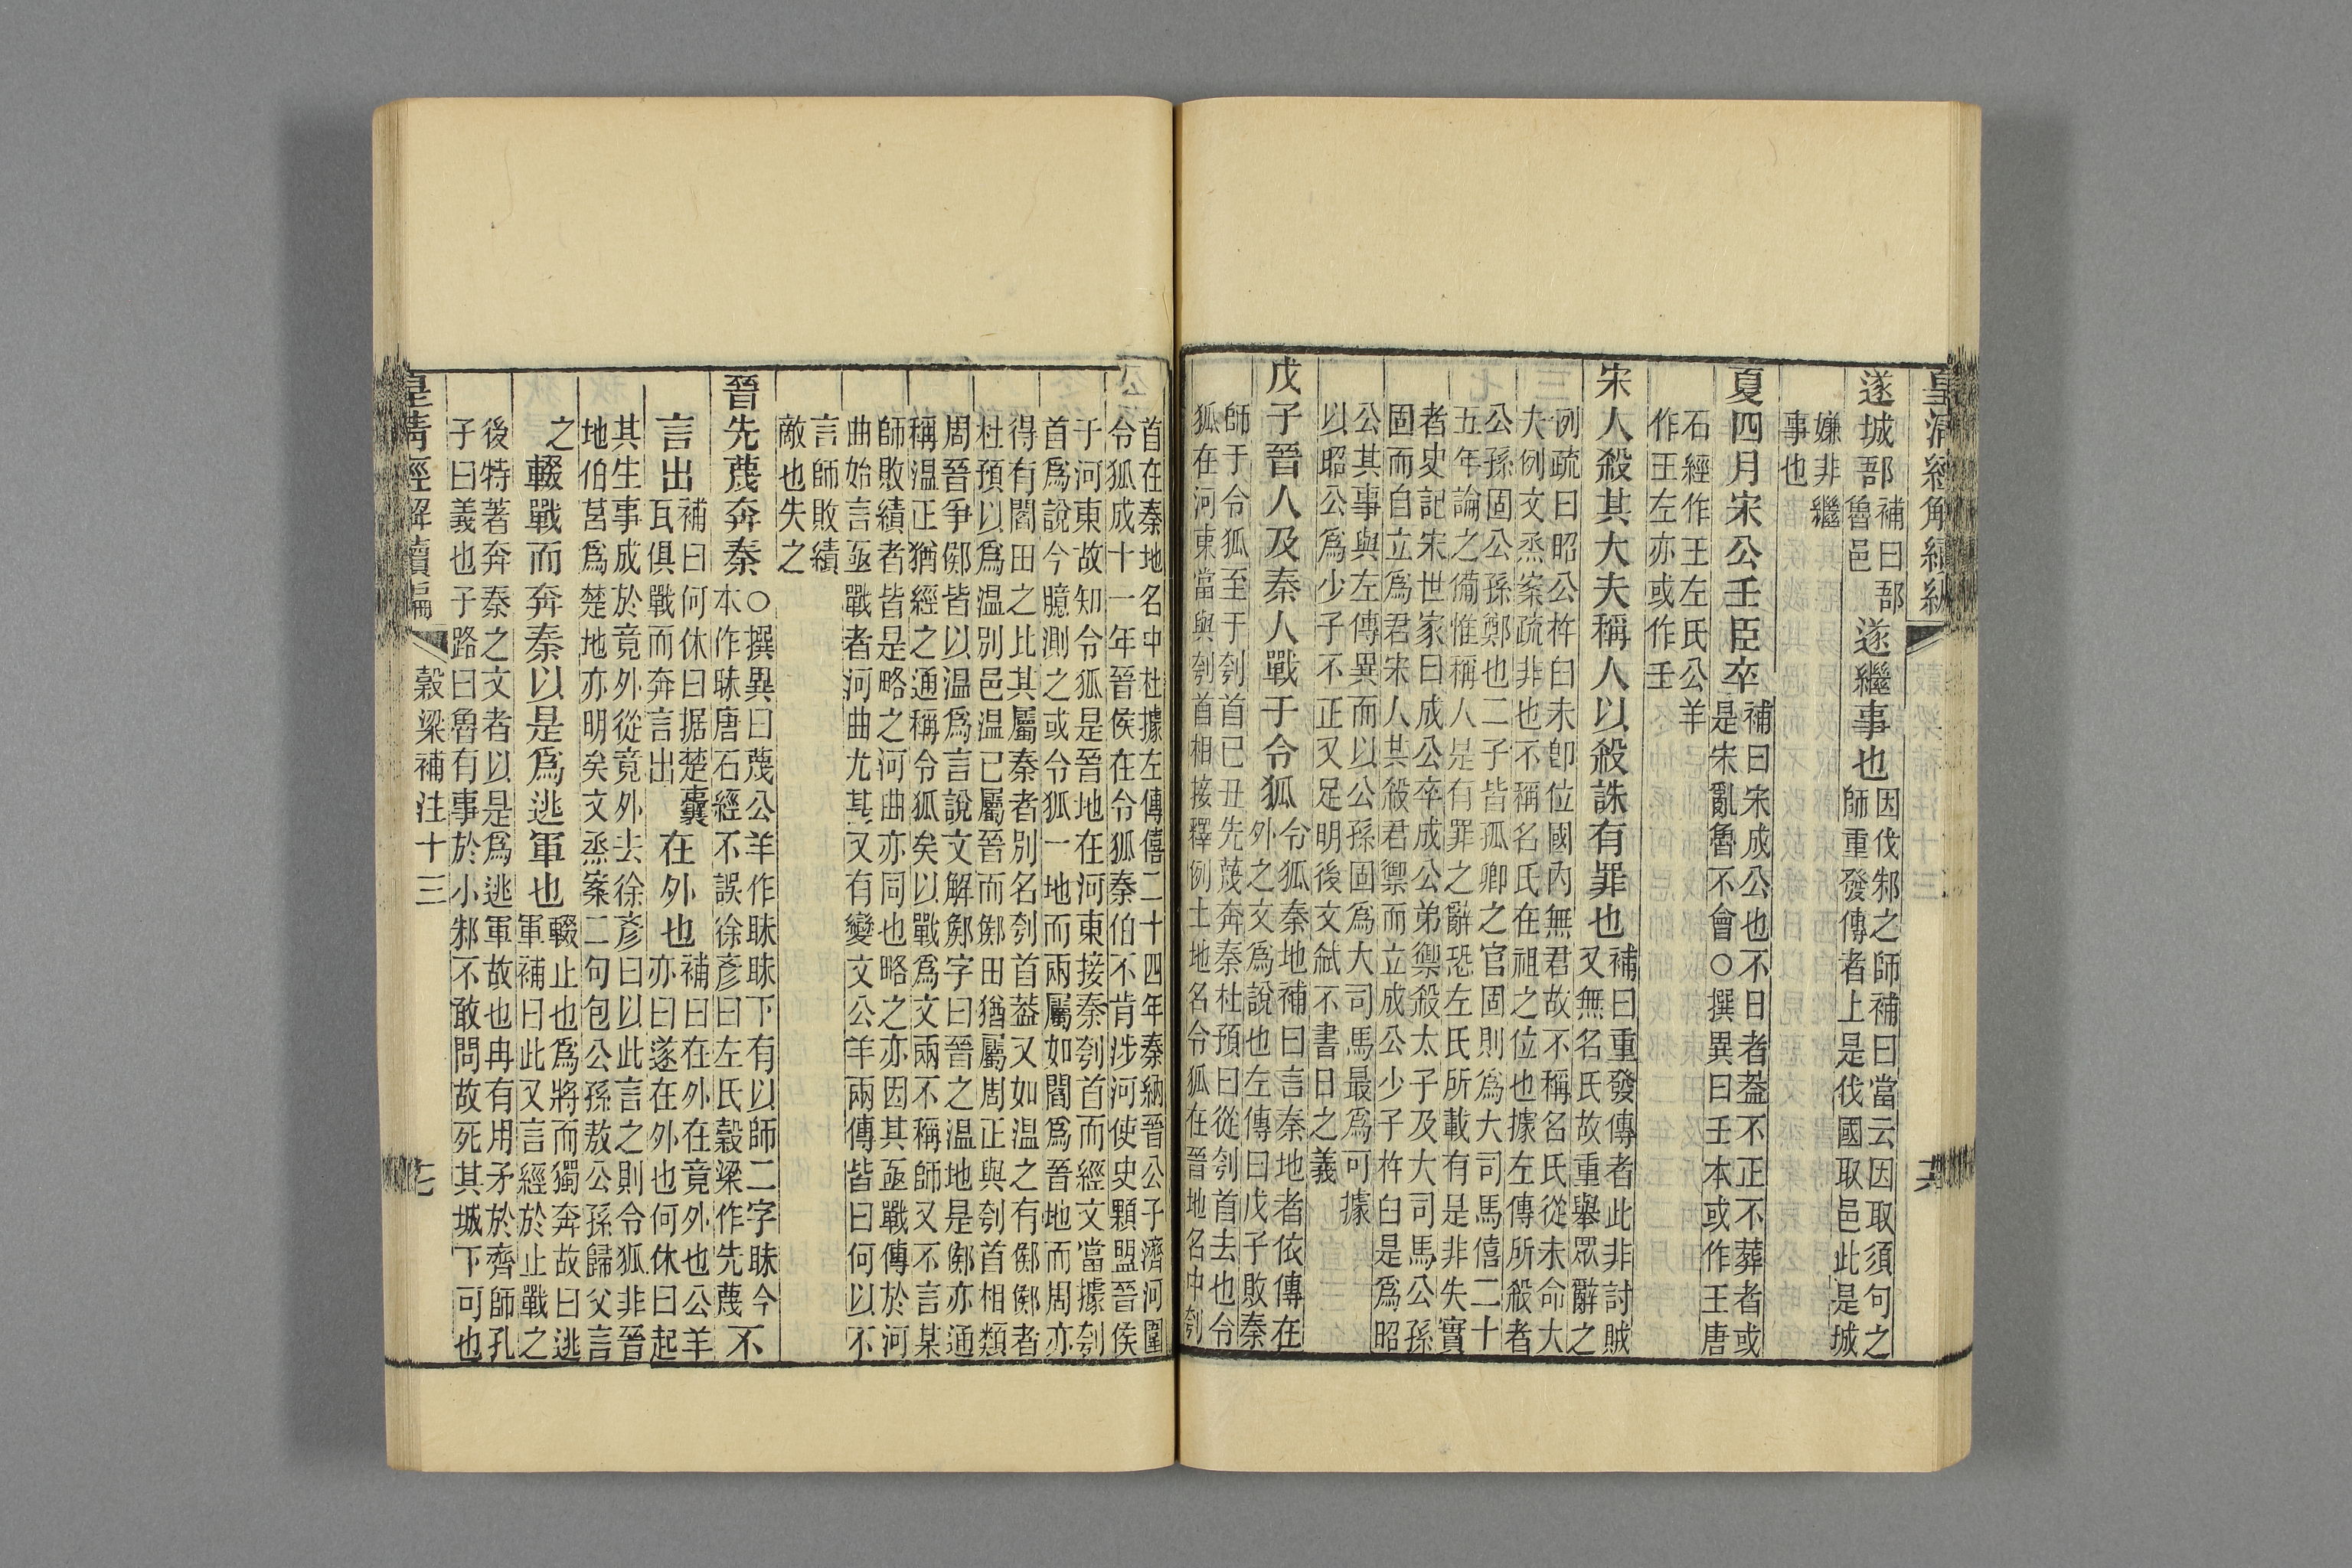 皇清經解續編 六
遂城郚 補曰郚
魯邑
遂繼事也 因伐邾之師補曰當云因取須句之
師重發傳者上是伐國取邑此是城
嫌非繼
事也
夏四月宋公壬臣卒 補曰宋成公也不日者葢不正不葬者或
是宋亂魯不會○撰異曰壬本或作王唐
石經作王左氏公羊
作王左亦或作壬
宋人殺其大夫稱人以殺誅有罪也 補曰重發傳者此非討賊
又無名氏故重舉眾辭之
例疏曰昭公杵臼未卽位國內無君故不稱名氏從未命大
夫例文烝案疏非也不稱名氏在祖之位也據左傳所殺者
公孫固公孫鄭也二子皆孤卿之官固則爲大司馬僖二十
五年論之備惟稱人是有罪之辭恐左氏所載有是非失實
者史記宋世家曰成公卒成公弟禦殺太子及大司馬公孫
固而自立爲君宋人共殺君禦而立成公少子杵臼是爲昭
公其事與左傳異而以公孫固爲大司馬最爲可據
以昭公爲少子不正又足明後文弑不書日之義
戊子晉人及秦人戰于令狐 令狐秦地補曰言秦地者依傳在
外之文爲說也左傳曰戊子敗秦
師于令狐至于刳首已丑先蔑奔秦杜預曰從刳首去也令
狐在河東當與刳首相接釋例土地名令狐在晉地名中刳
首在秦地名中杜據左傳僖二十四年秦納晉公子濟河圍
令狐成十一年晉侯在令狐秦伯不肯涉河使史顆盟晉侯
于河東故知令狐是晉地在河東接秦刳首而經文當據刳
首爲說今臆測之或令狐一地而兩屬如閻爲晉地而周亦
得有閻田之比其屬秦者別名刳首葢又如温之有鄇鄇者
杜預以爲温別邑温已屬晉而鄇田猶屬周正與刳首相類
周晉爭鄇皆以温爲言說文解鄇字曰晉之温地是鄇亦通
稱温正猶經之通稱令狐矣以戰爲文兩不稱師又不言某
師敗績者皆是略之河曲亦同也略之亦因其亟戰傳於河
曲始言亟戰者河曲尤甚又有變文公羊兩傳皆曰何以不
言師敗績
敵也失之
晉先蔑奔秦 ○撰異曰蔑公羊作眜眜下有以師二字眜今
本作昧唐石經不誤徐彥曰左氏穀梁作先蔑
不
言出 補曰何休曰据楚囊
瓦俱戰而奔言出
在外也 補曰在外在竟外也公羊
亦曰遂在外也何休曰起
其生事成於竟外從竟外去徐彥曰以此言之則令狐非晉
地伯莒爲楚地亦明矣文烝案二句包公孫敖公孫歸父言
之
輟戰而奔秦以是爲逃軍也 輟止也爲將而獨奔故曰逃
軍補曰此又言經於止戰之
後特著奔秦之文者以是爲逃軍故也冉有用矛於齊師孔
子曰義也子路曰魯有事於小邾不敢問故死其城下可也
皇清經解續編 穀梁補注十三 七